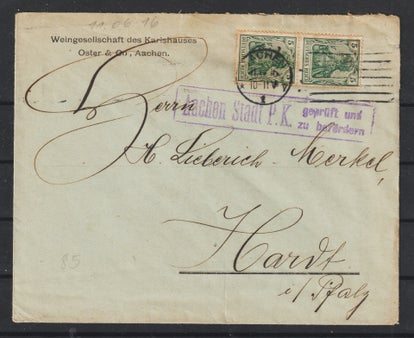 11.06.16
Weingesellschaft des Karlshauses
Oster & Co, Aachen.
5 5
AACHEN
10-11
Aachen Stadt P.K. geprüft und
zu befördern
Herrn
H. Lieberich-Merkel,
Hardt
i/Pfalz
85